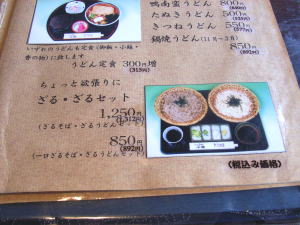 鴨南蛮うどん 800円
(840円)
たぬきうどん 500円
(525円)
きつねうどん 550円
(577円)
鍋焼うどん(11月~3月)
850円
(892円)
いずれのうどんも定食(御飯・小鉢・
香の物)に致します
うどん定食 300円増
(315円)
ちょっと欲張りに
ざる・ざるセット
1,250円
(1,312円)
(ざるそば・ざるうどんセット)
850円
(892円)
(一口ざるそば・ざるうどんセット)
(税込み価格)